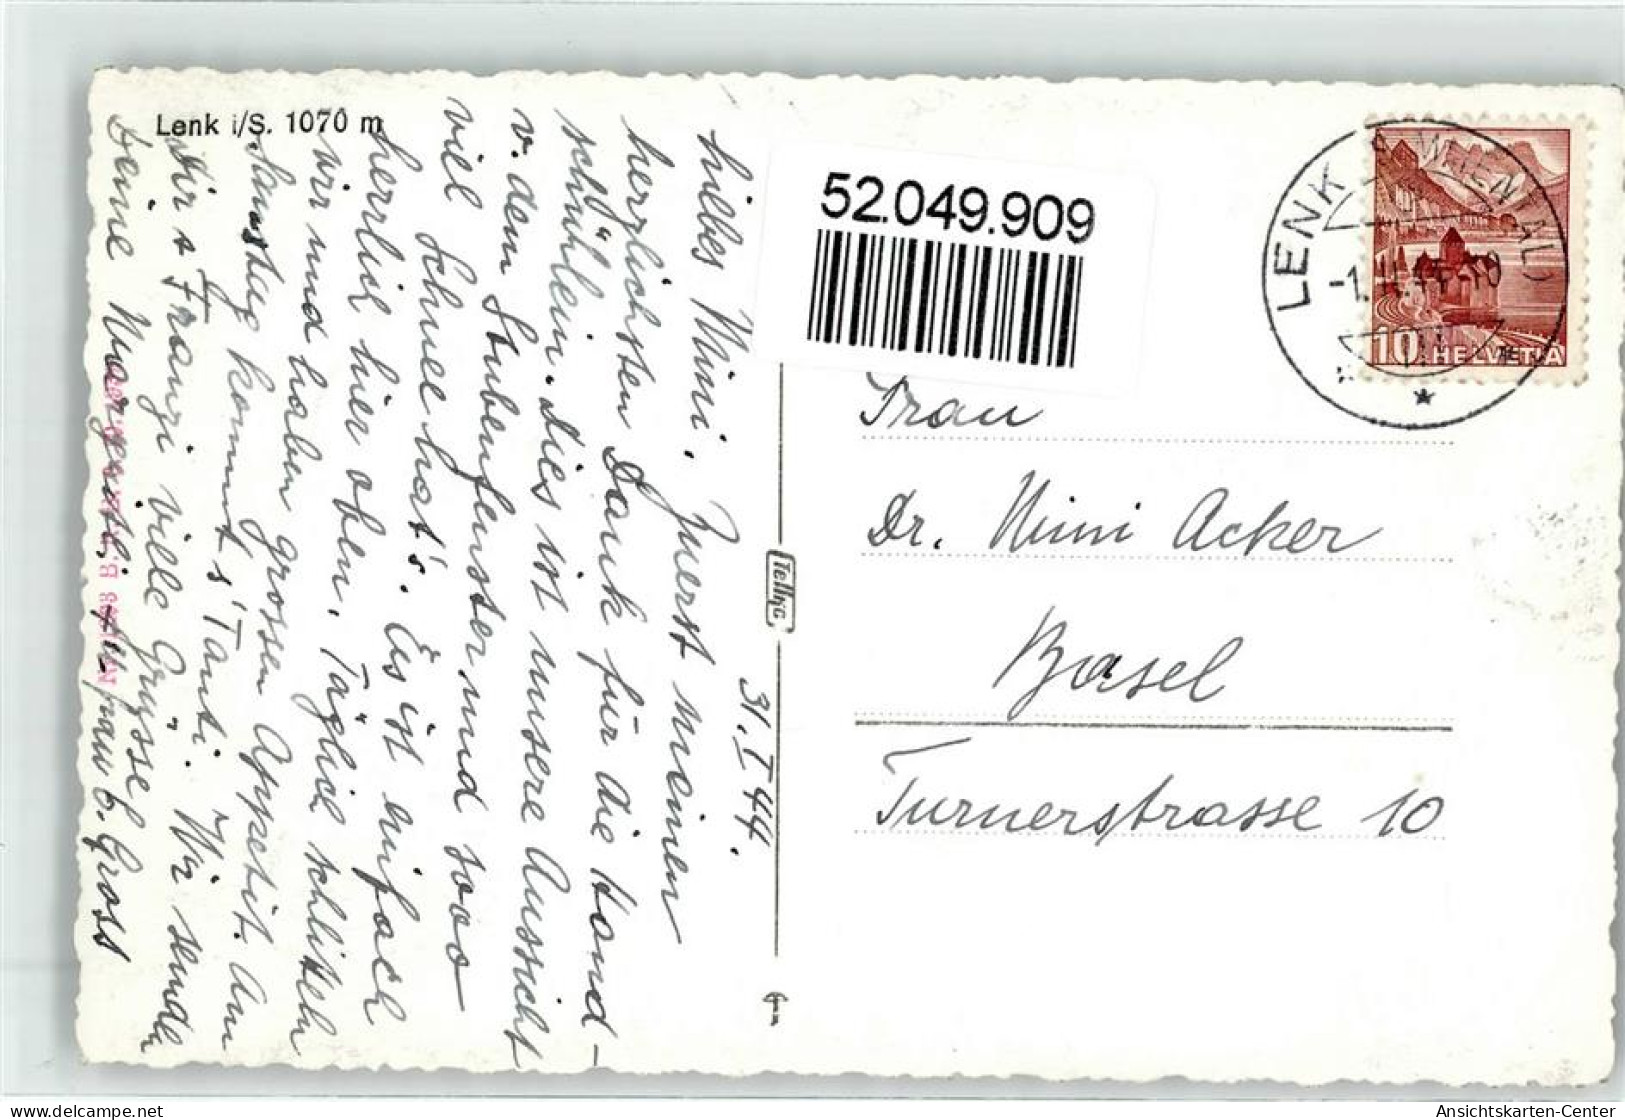 Lenk i/S. 1070 m
31. I 44.
liebes Mimi. Zuerst meinen
herzlichsten Dank für die Hand-
schühlein. Dies ist unsere Aussicht
v. dem Stubenfenster und sooo
viel Schnee hat's. Es ist einfach
herrlich hier oben. Täglich schlitteln
wir und haben grossen Appetit. Am
Samstag kommt s'Tanti. Wir senden
Dir & Franzi viele Grüsse!
Deine Margritli. frau E. Gross
Tellko
52.049.909
LENK (SIMMENTAL)
-1. II. 44-10
10 HELVETIA
Frau
Dr. Mimi Acker
Basel
Turnerstrasse 10
delcampe.net
Ansichtskarten-Center